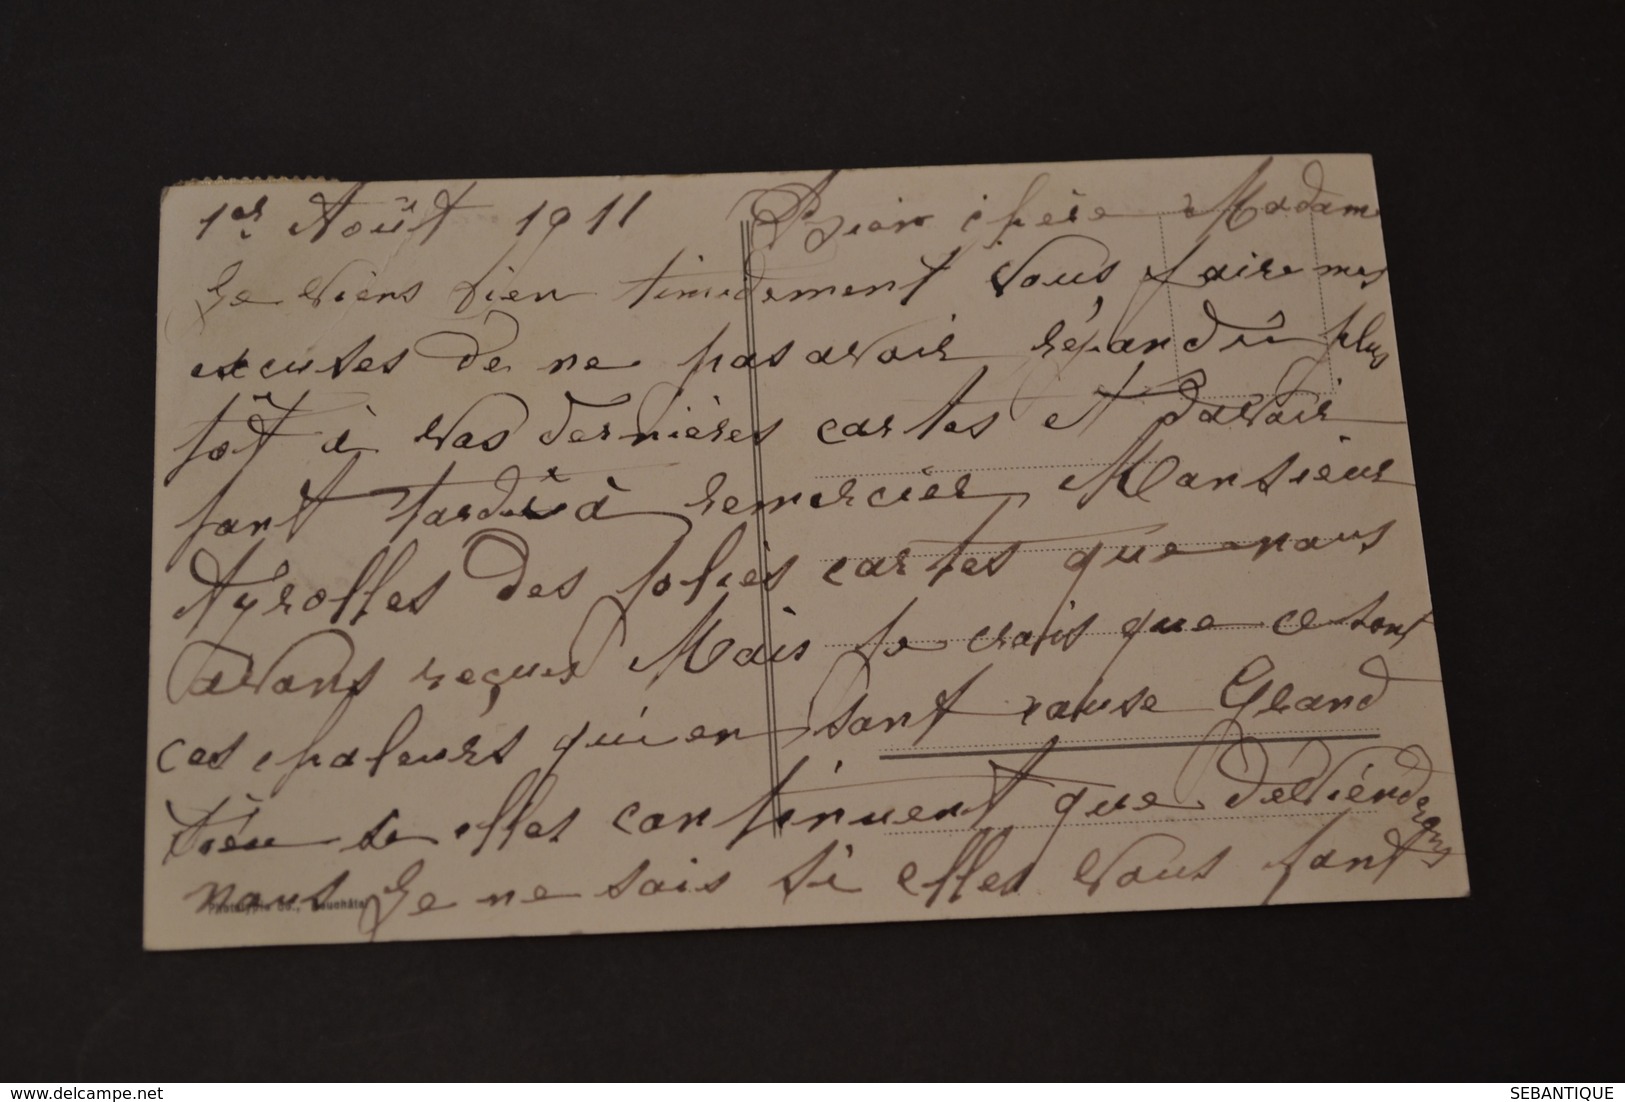 1er Août 1911 Bien chère Madame
Je viens bien timidement vous faire mes
excuses de ne pas avoir répandû plus
tôt à vos dernières cartes et davoir
tant tardé à remercier Monsieur
Ayrolles des jolies cartes que nous
avons reçues Mais je crois que ce sont
ces chaleurs qui en sont cause Grand
Dieu si elles continuent que deviendrons
nous Je ne sais si elles vous font
Phototypie Co., Neuchâtel
SEBANTIQUE